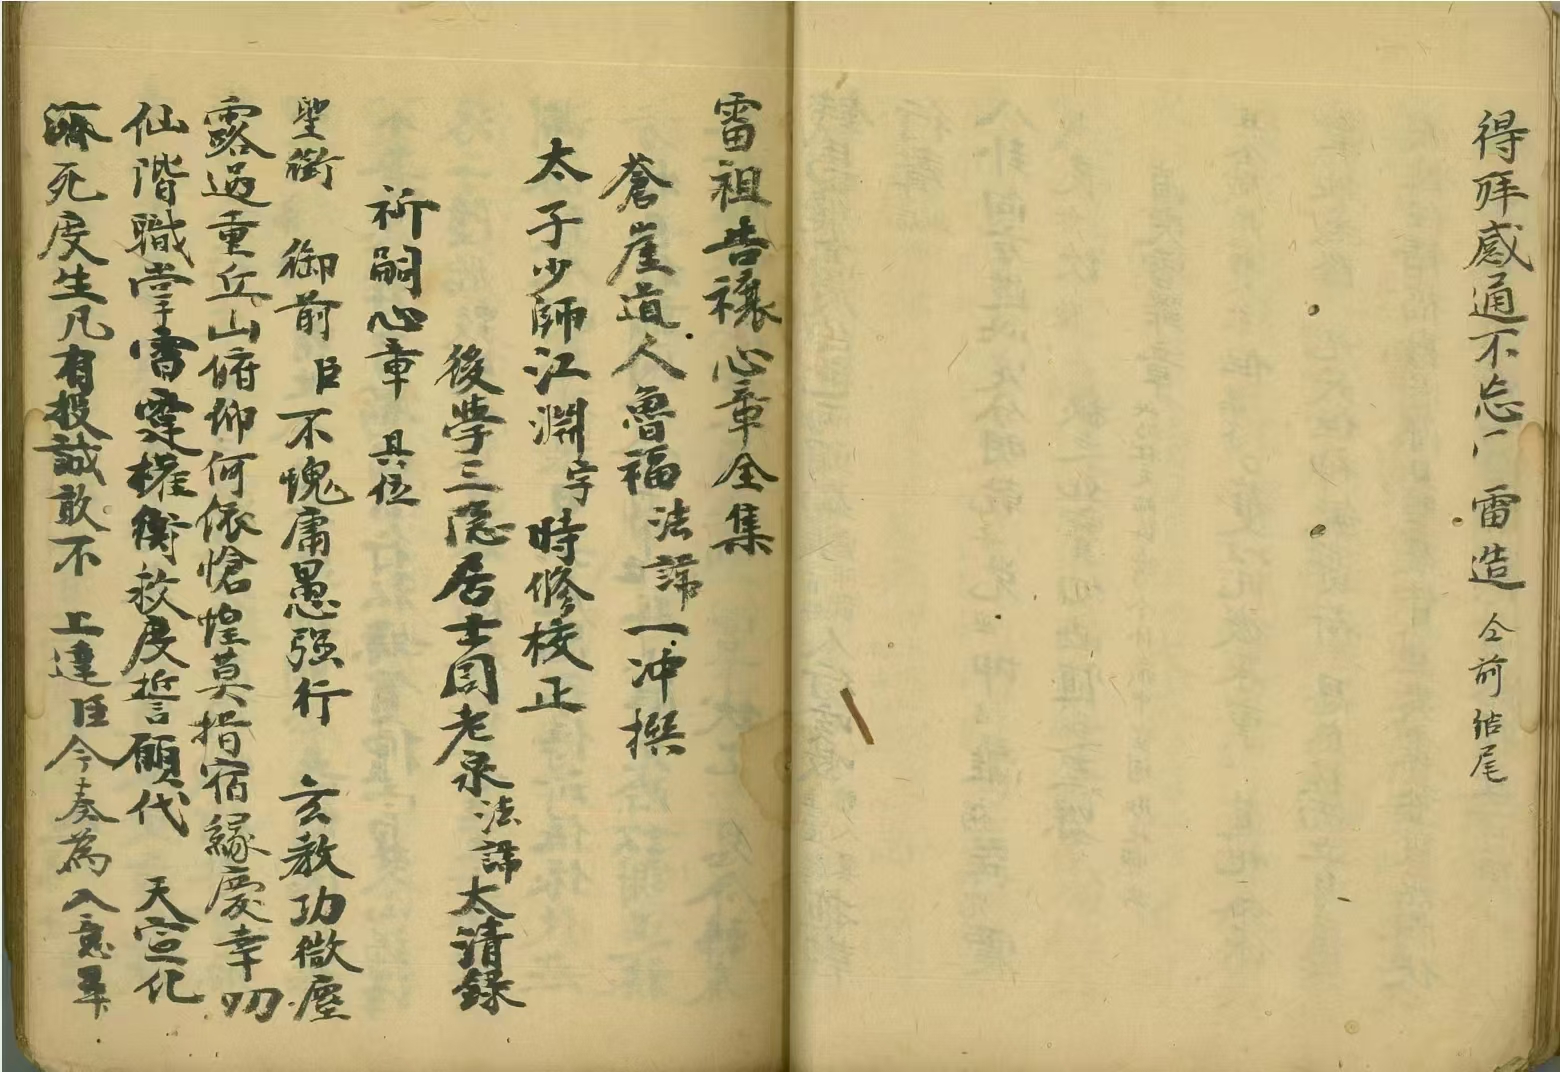 得拜感通不忘厂雷造 仝前结尾
雷祖告禳心章全集
蒼崖道人魯福法諱一冲撰
太子少師江淵字時修校正
後學三隐居士周老泉法諱太清録
祈嗣心章 具位
聖銜 御前 臣不愧庸愚强行 玄教功微塵
露過重丘山俯仰何依愴惶莫措宿緣慶幸叨
仙階職掌雷霆權衡救度誓願代 天宣化
濟死度生凡有投誠敢不 上達臣今奏為入意畢